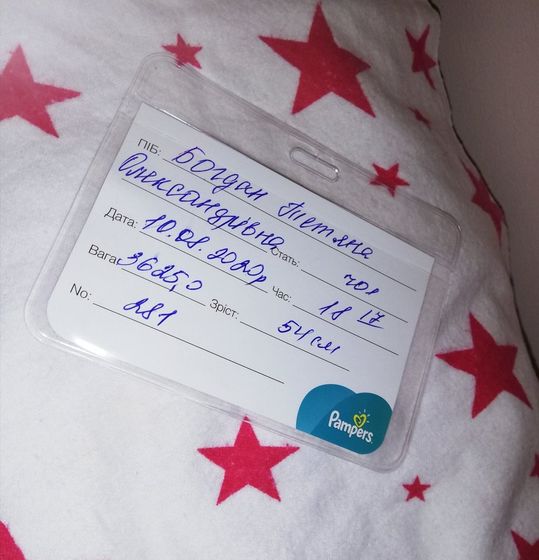 ПІБ: Богдан Тетяна
Олександрівна
Стать: чол
Дата: 10.08.2020р Час: 18 17
Вага: 3625,0 Зріст: 54 см
No: 281
Pampers